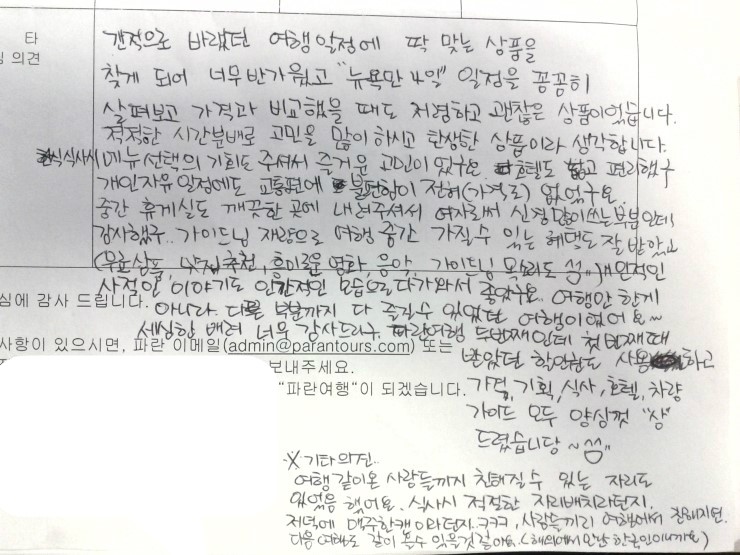 타
의견
개인적으로 바랬던 여행일정에 딱 맞는 상품을
찾게 되어 너무 반가웠고 "뉴욕만 4일" 일정을 꼼꼼히
살펴보고 가격과 비교했을 때도 저렴하고 괜찮은 상품이었습니다.
적정한 시간분배로 고민을 많이 하시고 탄생한 상품이라 생각합니다.
한식식사시 메뉴선택의 기회도 주셔서 즐거운 고민이 있구요 호텔도 넓고 편리했구
개인자유일정에도 교통편에 불편함이 전혀(가격도) 없었구요
중간 휴게실도 깨끗한 곳에 내려주셔서 여자로써 신경많이쓰는부분인데
감사했구.. 가이드님 재량으로 여행 중간 가질수 있는 혜택도 잘 받았고
(무료상품, 추천, 흥미로운 영화, 음악, 가이드님 목소리도 씀" )개인적인
사적인 이야기도 인간적인 모습으로 다가와서 좋았구요. 여행만 한게
심에 감사 드립니다.
아니라. 다른 부분까지 다 즐길수 있었던 여행이었어요~
세심한 배려 너무 감사드리구, 파란여행 두번째인데 첫번째때
사항이 있으시면, 파란 이메일(admin@parantours.com) 또는
받았던 할인권도 사용하고
보내주세요.
"파란여행"이 되겠습니다.
가격, 기획, 식사, 호텔, 차량
가이드 모두 양심껏 "상"
드렸습니당~
※기타의견..
여행 같이온 사람들까지 친해질수 있는 자리도
있었음 했어요. 식사시 적절한 자리배치라던지.
저녁에 맥주한캔이라던지..ㅋㅋㅋ, 사람들끼리 여행에서 친해지면.
다음 여행도 같이 올수 있을것 같아요. (해외에서 만난 한국인이니까요)